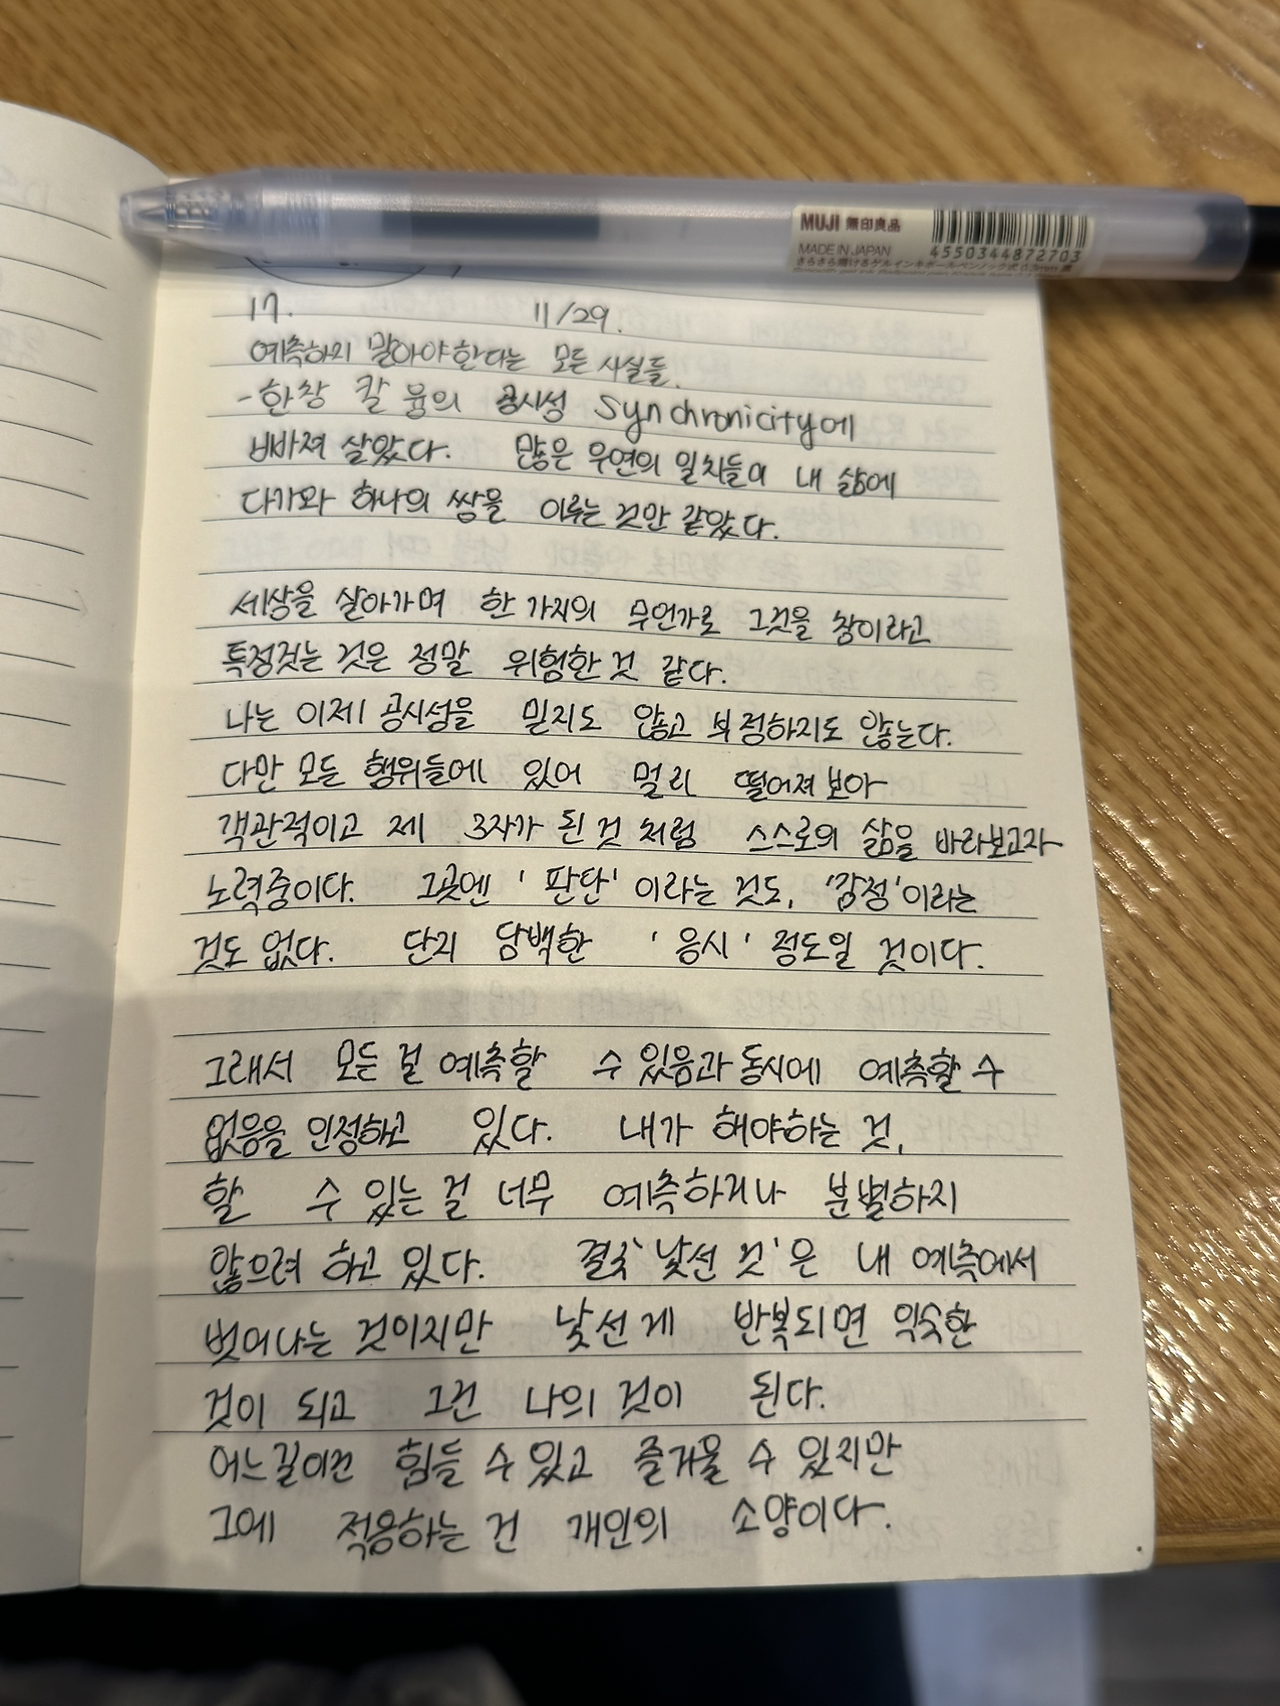 MUJI 無印良品
MADE IN JAPAN
4550344872703
さらさら描けるゲルインキボールペンノック式 0.5mm
17. 11/29.
예측하지 말아야한다는 모든 사실들.
-한창 칼 융의 공시성 Synchronicity에
빠져 살았다. 많은 우연의 일치들이 내 삶에
다가와 하나의 쌍을 이루는 것만 같았다.
세상을 살아가며 한 가지의 무언가로 그것을 창이라고
특정짓는 것은 정말 위험한 것 같다.
나는 이제 공시성을 믿지도 않고 부정하지도 않는다.
다만 모든 행위들에 있어 멀리 떨어져 보아
객관적이고 제 3자가 된 것 처럼 스스로의 삶을 바라보고자
노력중이다. 그곳엔 '판단' 이라는 것도, '감정'이라는
것도 없다. 단지 담백한 '응시' 정도일 것이다.
그래서 모든 걸 예측할 수 있음과 동시에 예측할 수
없음을 인정하고 있다. 내가 해야하는 것,
할 수 있는 걸 너무 예측하거나 분별하지
않으려 하고 있다. 결국 '낯선 것'은 내 예측에서
벗어나는 것이지만 낯선 게 반복되면 익숙한
것이 되고 그건 나의 것이 된다.
어느길이건 힘들 수 있고 즐거울 수 있지만
그에 적응하는 건 개인의 소양이다.